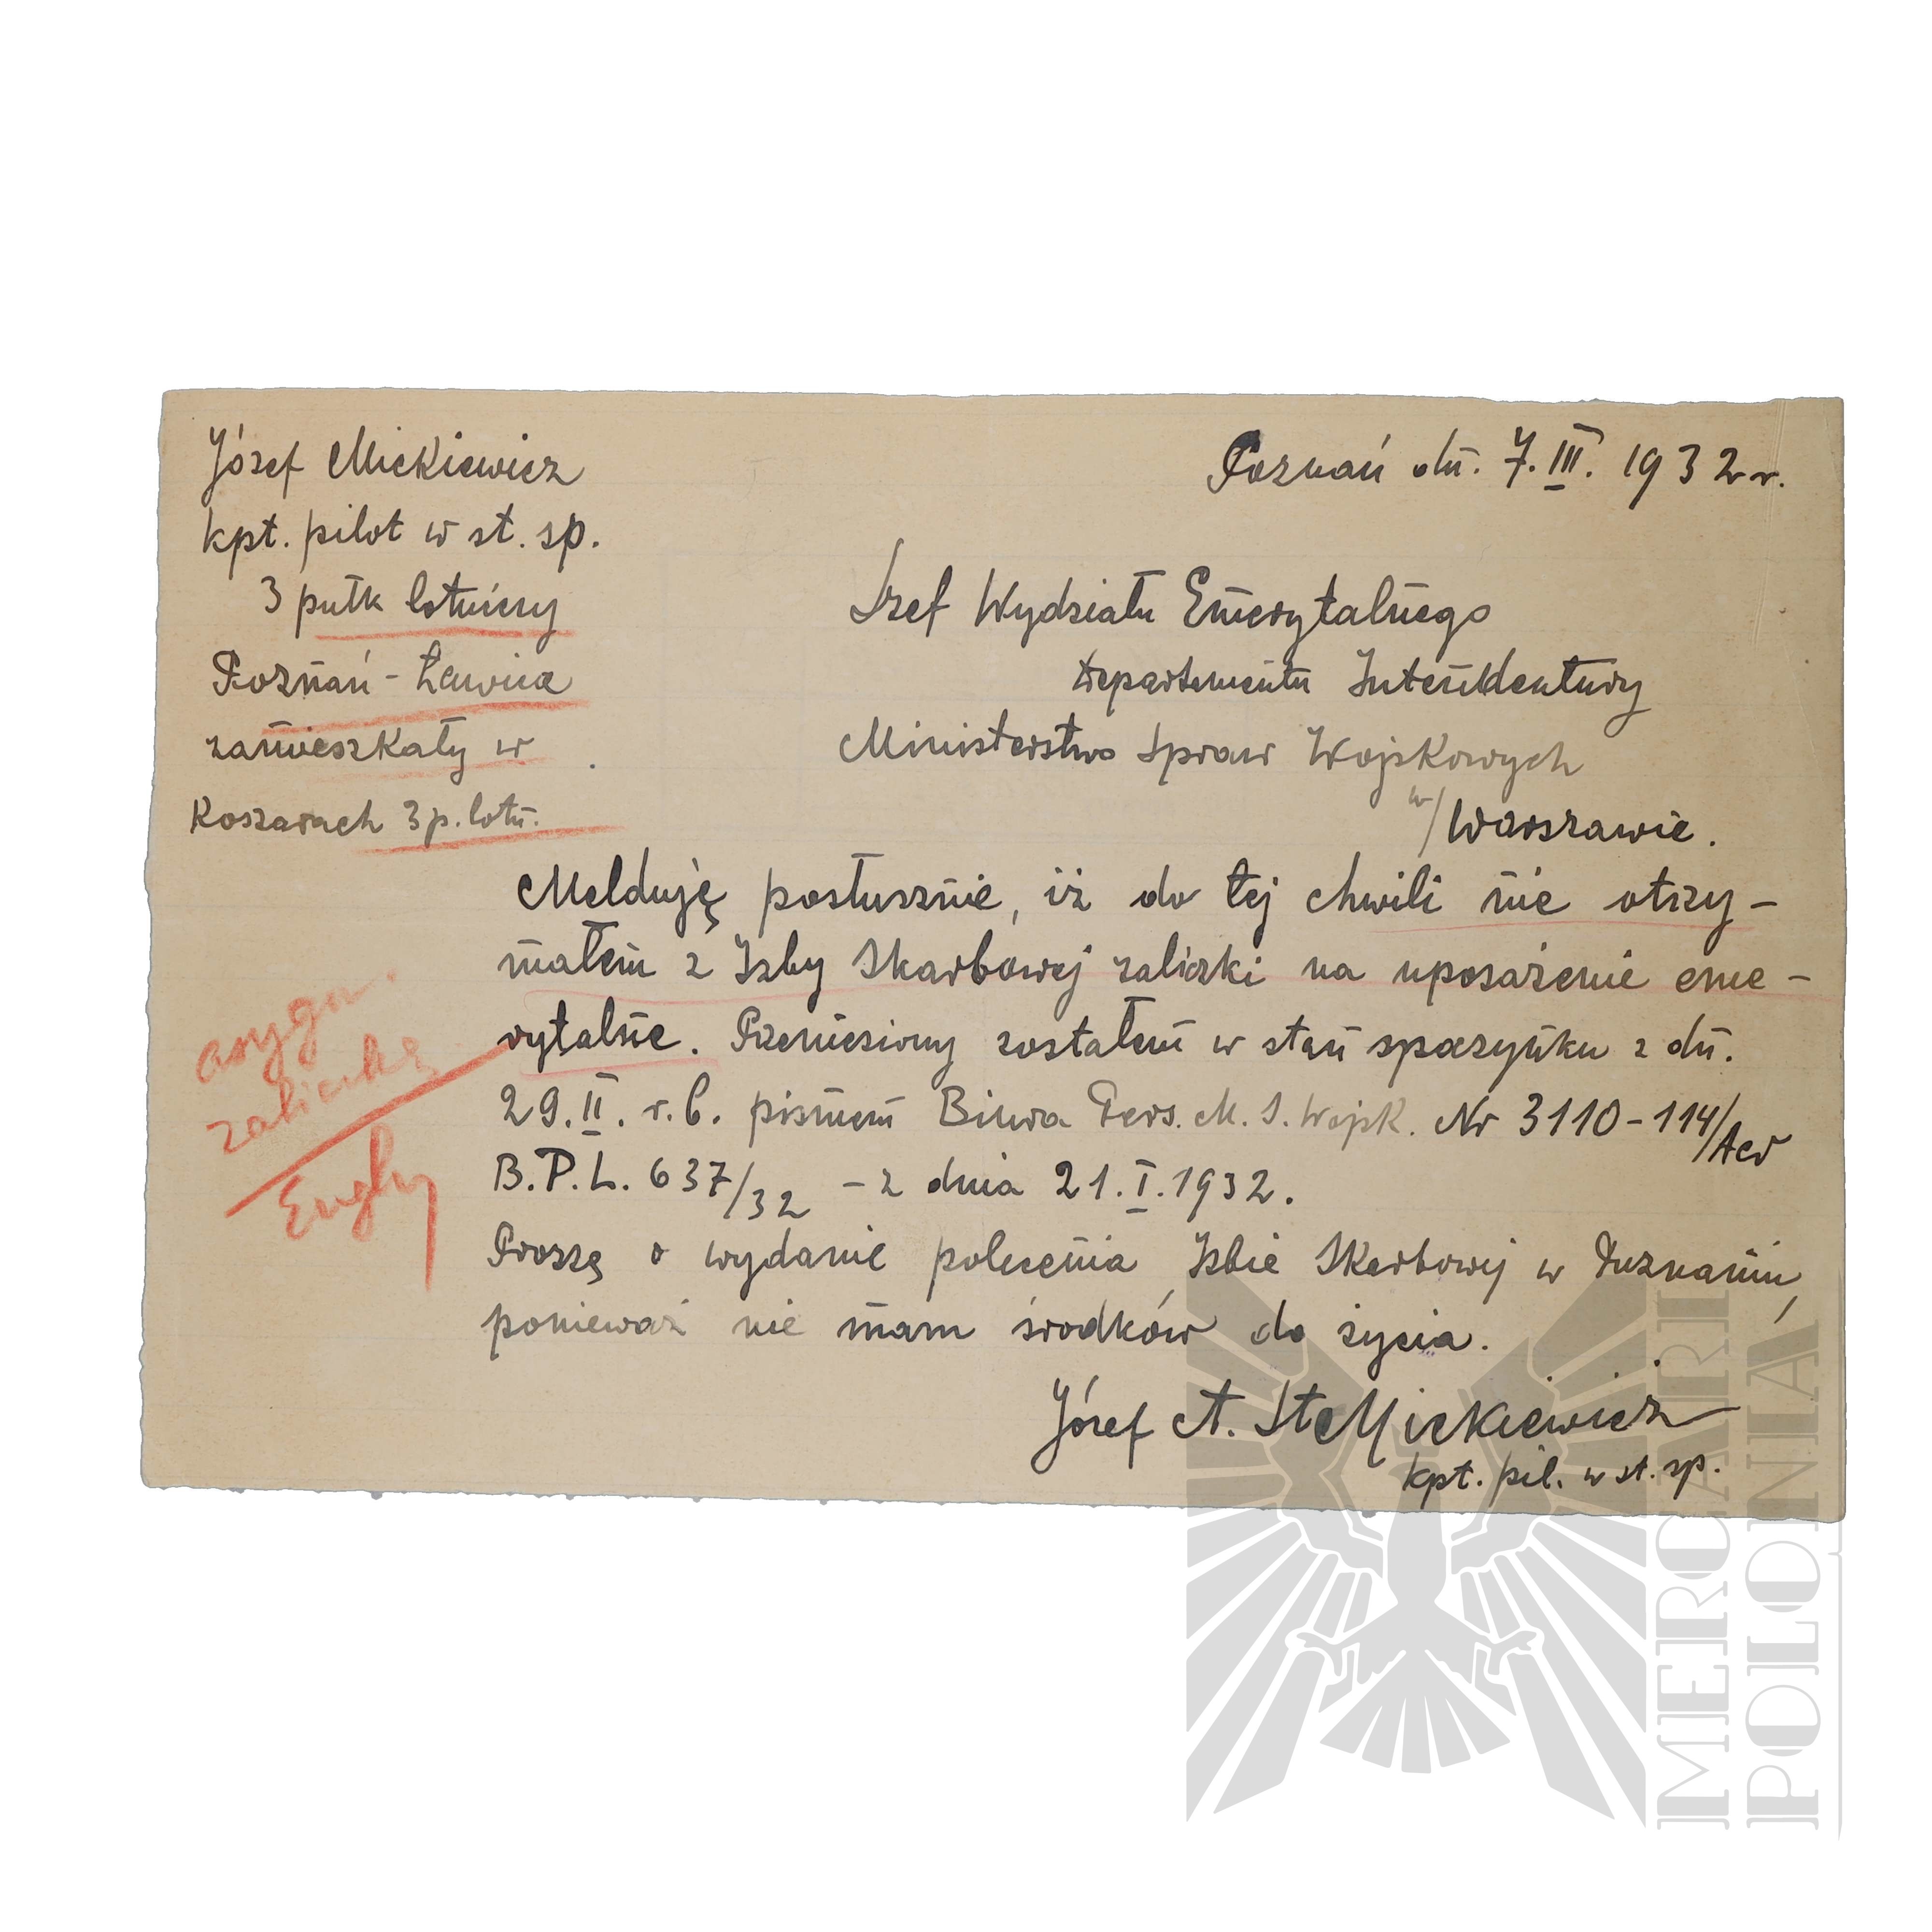 Józef Mickiewicz
kpt. pilot w st. sp.
3 pułk lotniczy
Poznań - Ławica
zamieszkały w
Koszarach 3 p. lotn.
Poznań dn. 7. III. 1932 r.
Szef Wydziału Emerytalnego
Departamentu Intendentury
Ministerstwo Spraw Wojskowych
w/Warszawie.
Melduję posłusznie, iż do tej chwili nie otrzy-
małem z Izby Skarbowej zaliczki na uposażenie eme-
rytalne. Przeniesiony zostałem w stan spoczynku z dn.
29. II. r. b. pismem Biura Pers. M. S. Wojsk. Nr 3110-114/
B.P.L. 637/32 - z dnia 21. I. 1932.
Proszę o wydanie polecenia Izbie Skarbowej w Poznaniu,
ponieważ nie mam środków do życia.
Józef A. Mickiewicz
kpt. pil. w st. sp.
asygn.
zaliczkę
MERCARII
POLONIA